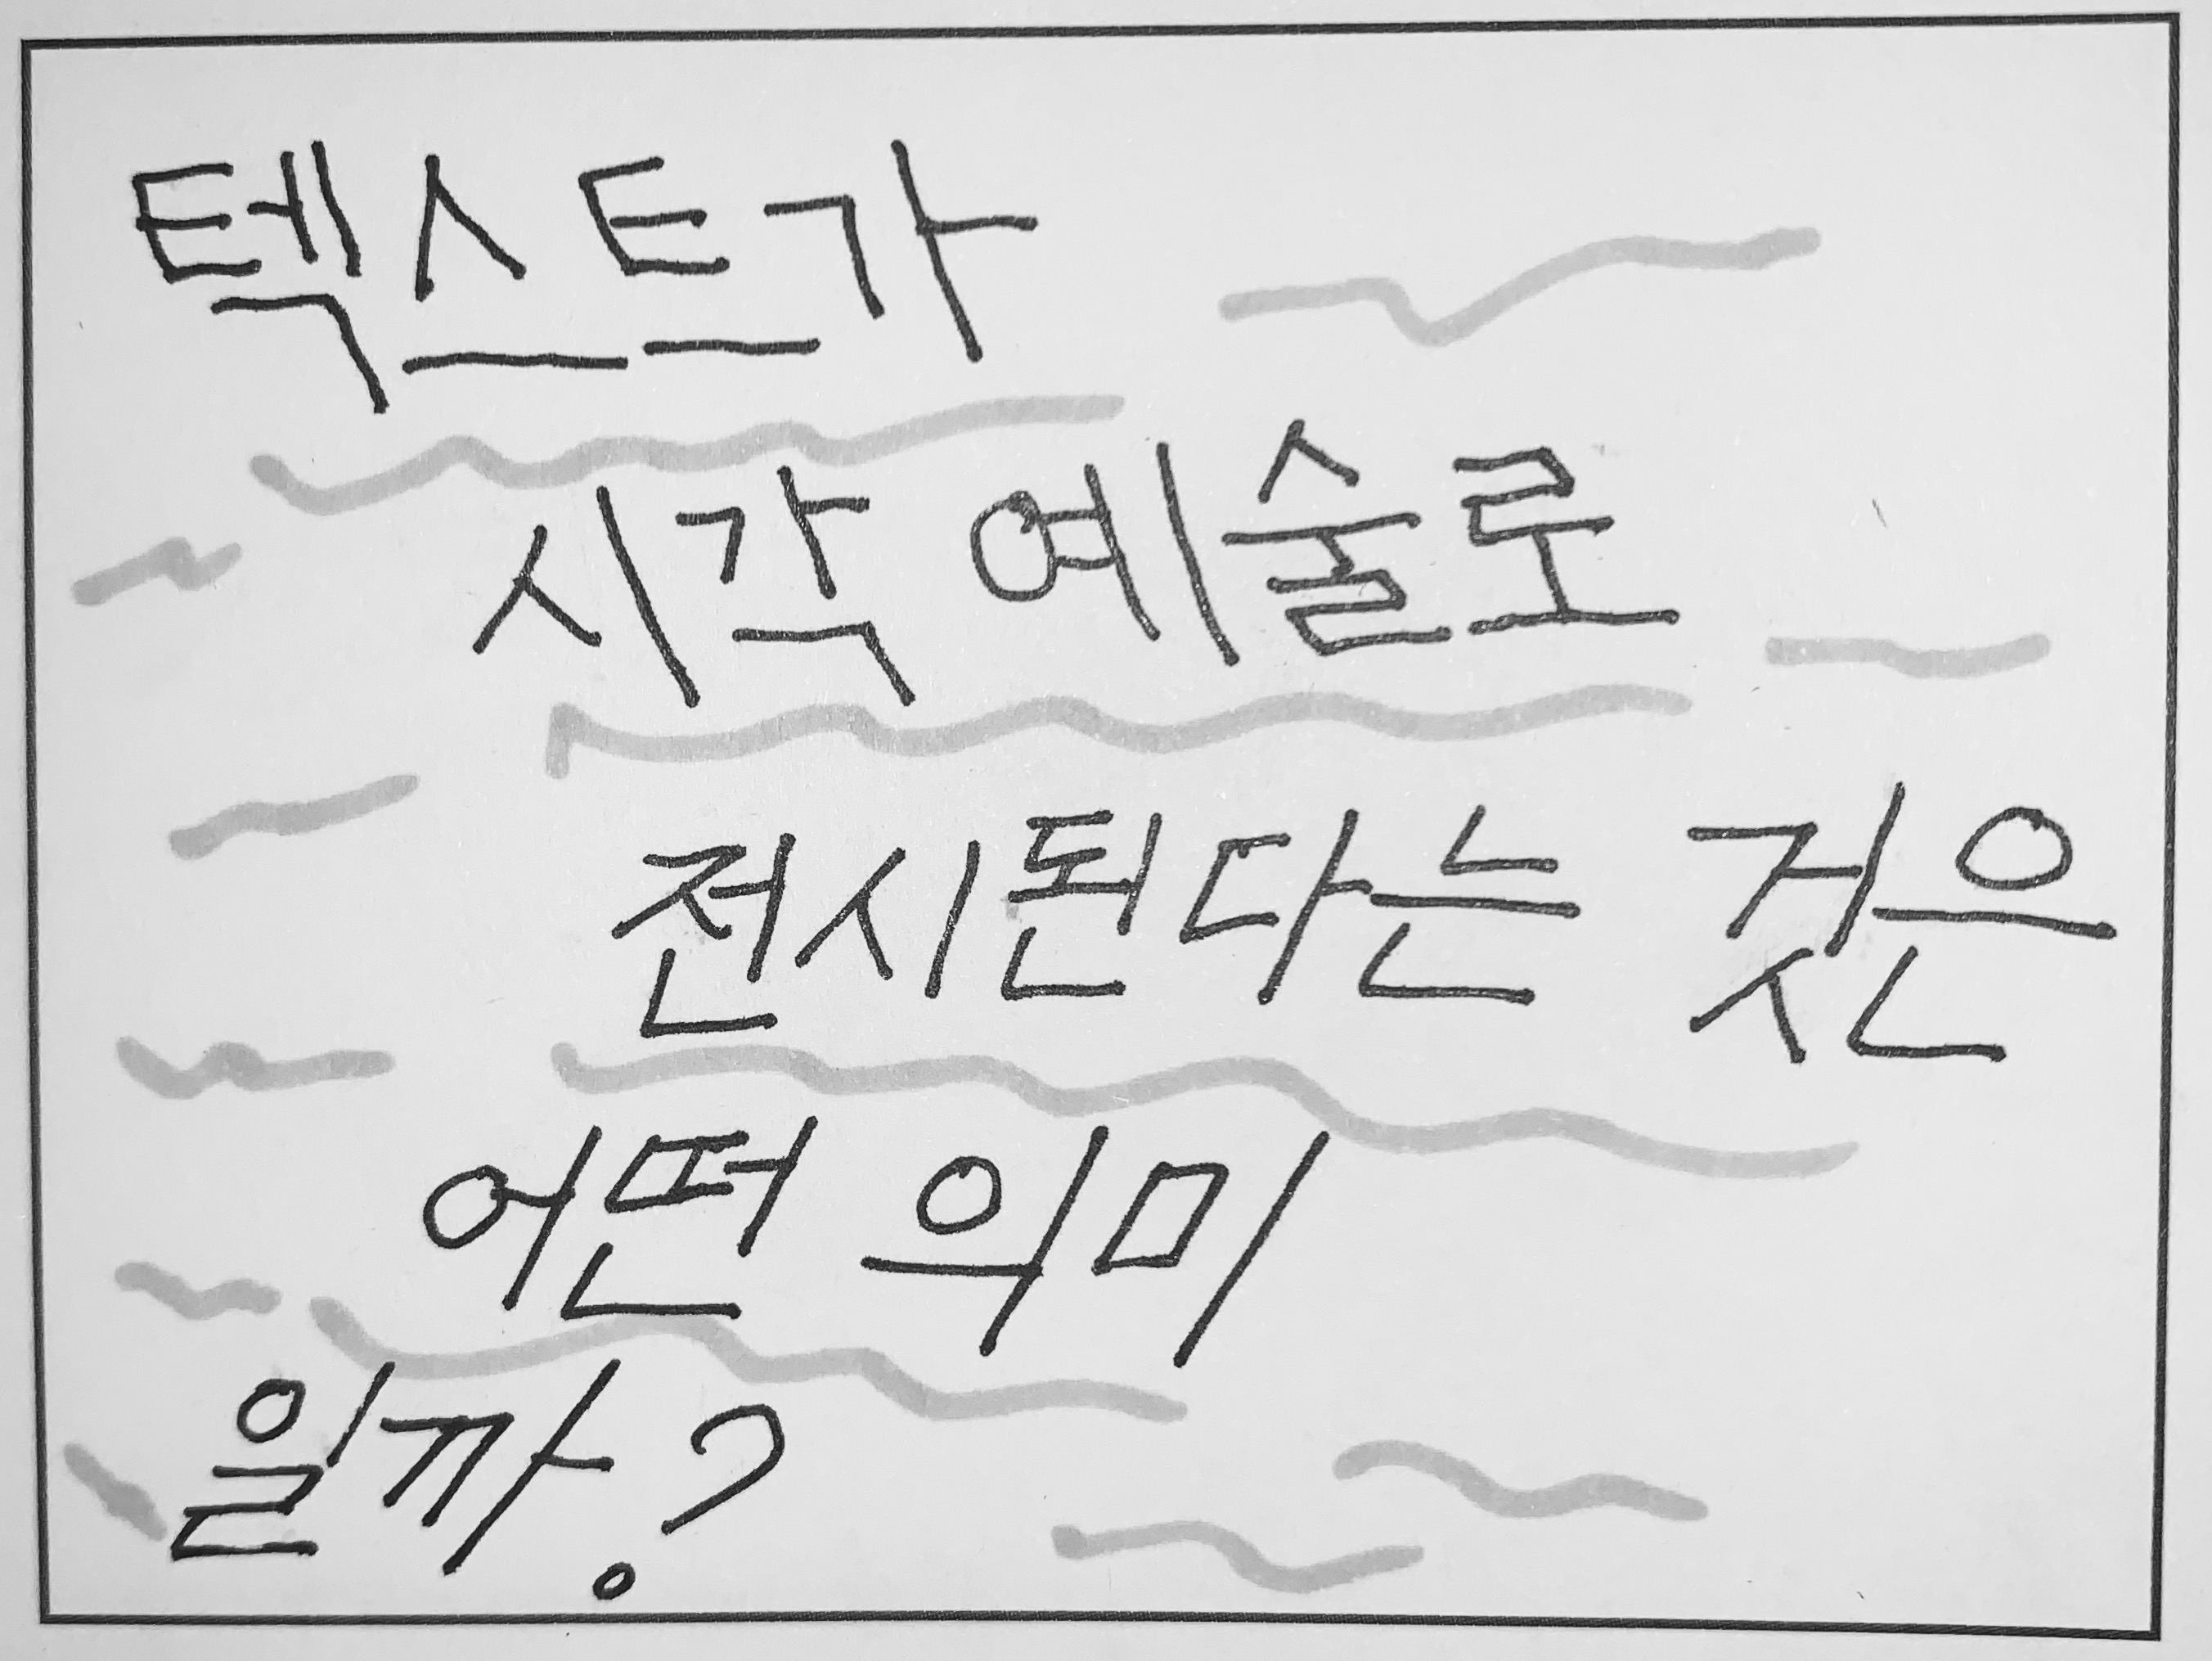 텍스트가
시각 예술로
전시된다는 것은
어떤 의미
일까?